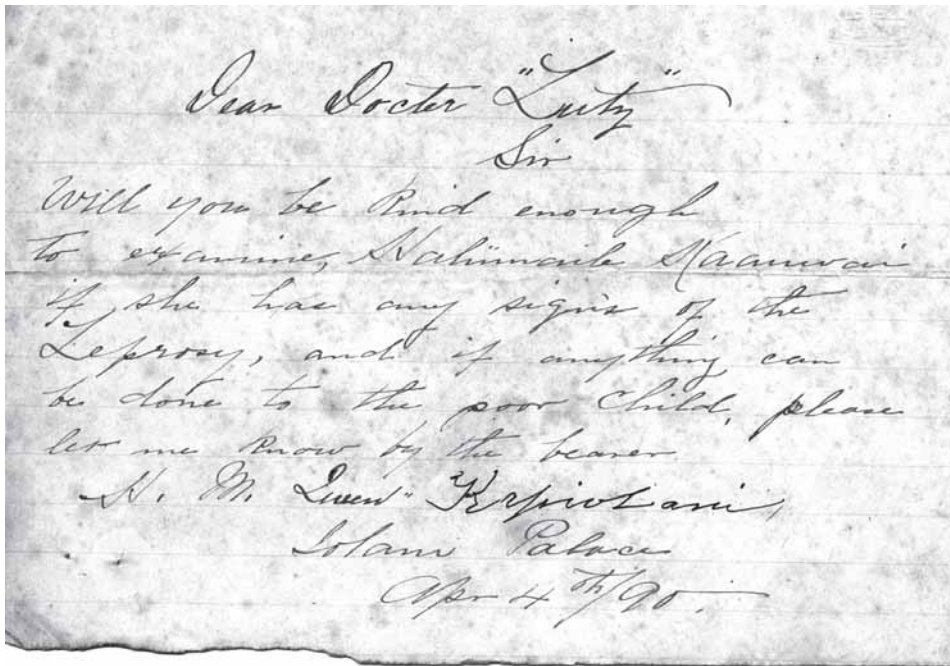 Dear Docter "Lutz"
Sir
Will you be kind enough
to examine, Kaanwai
if she has any signs of the
Leprosy, and if anything can
be done to the poor child, please
let me know by the bearer
H. M. Queen Kapiolani,
Iolani Palace
Apr 4th/90.